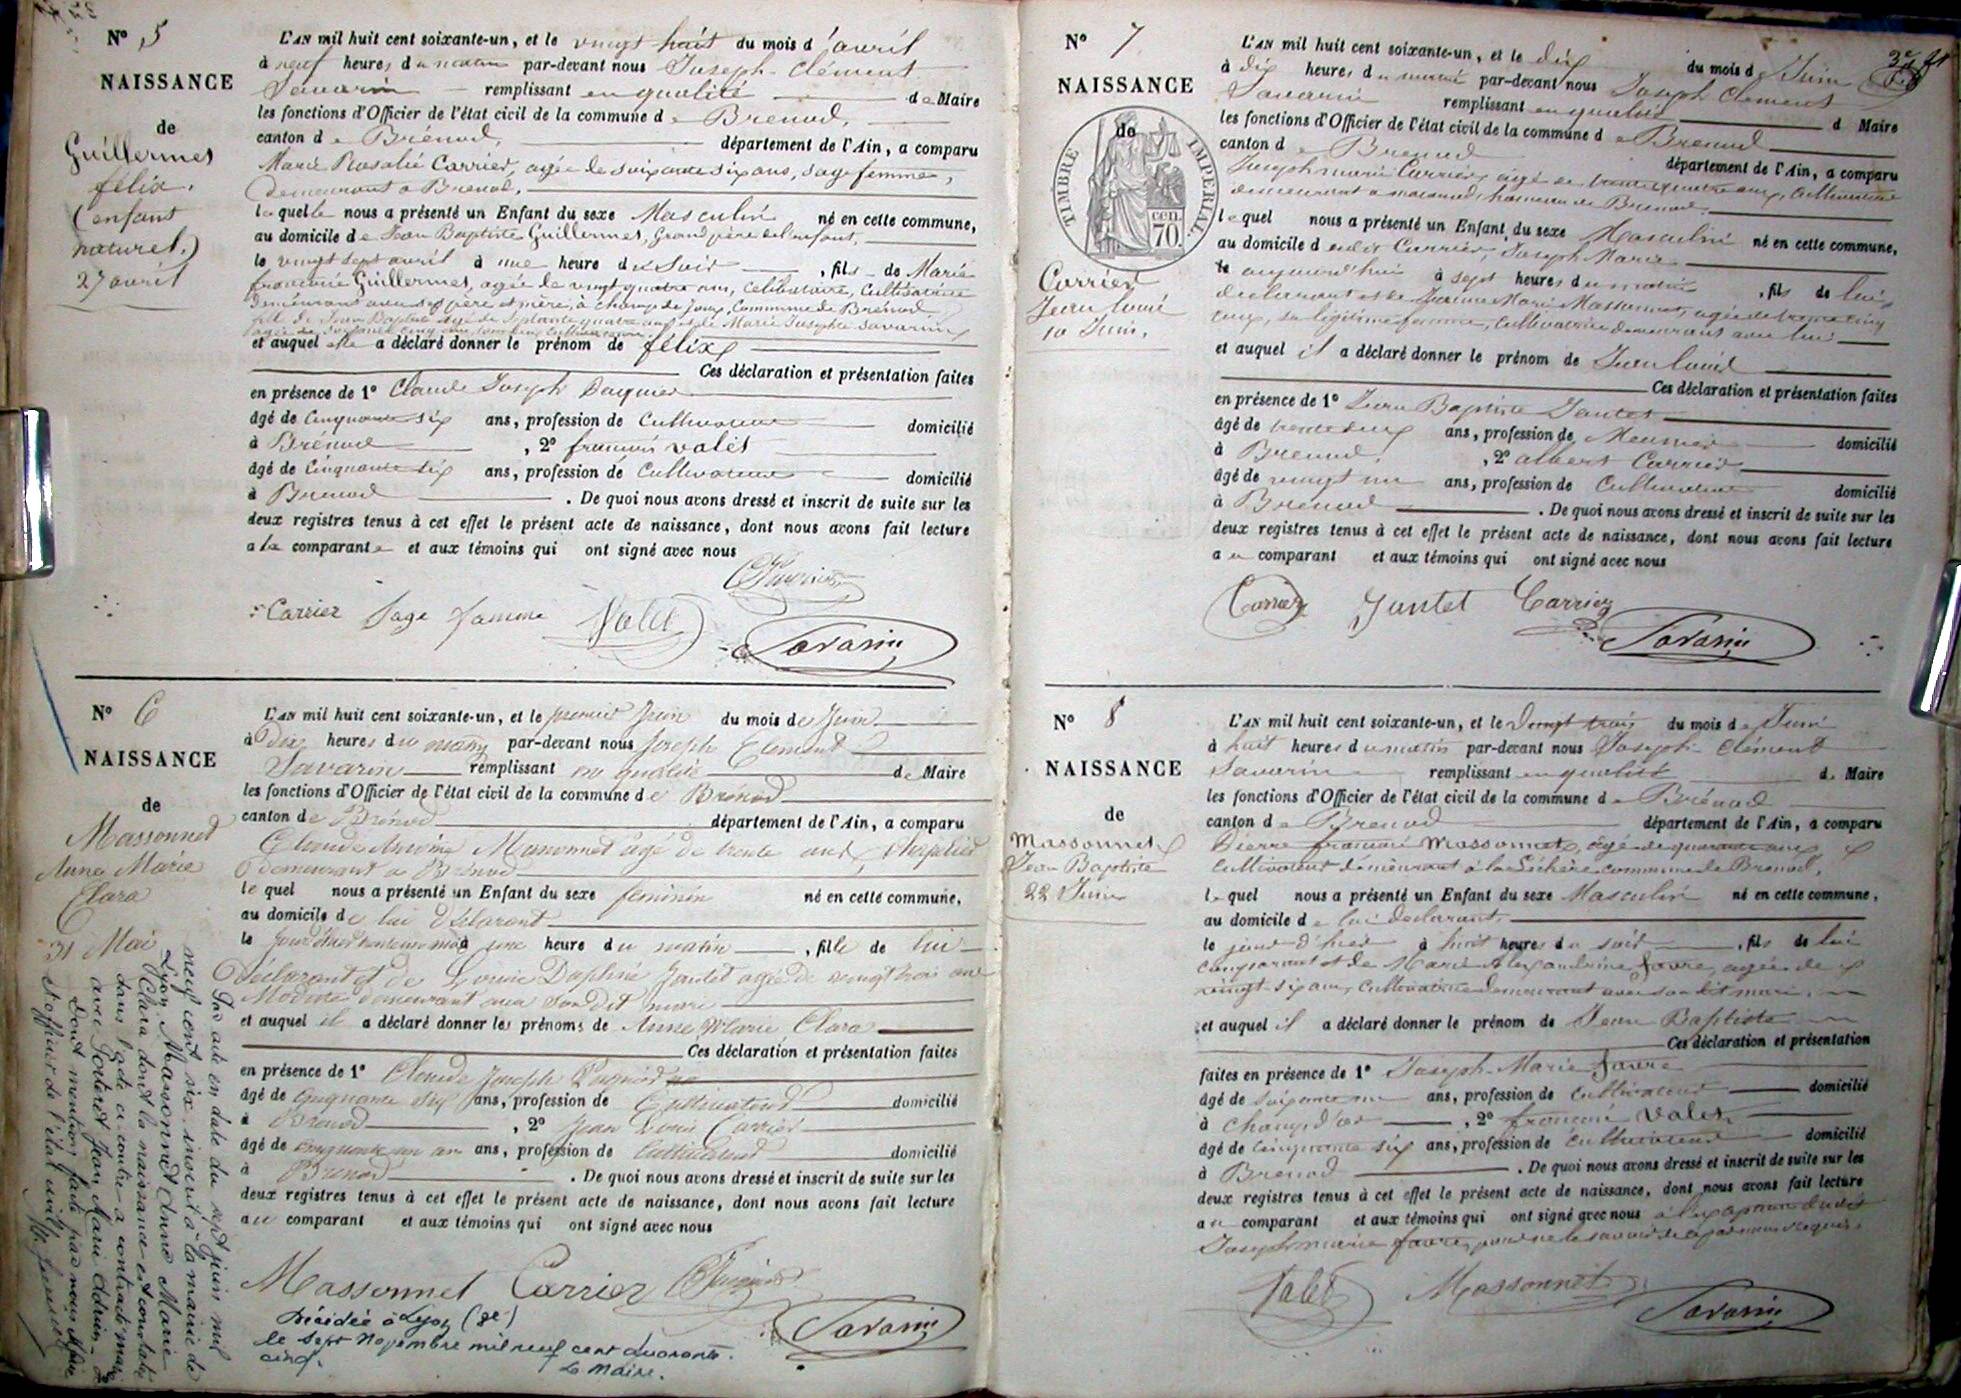 N° 5
NAISSANCE
de
Guillermet
félix.
(enfant
naturel.)
27 avril
L'AN mil huit cent soixante-un, et le vingt huit du mois d'avril
à neuf heures du matin par-devant nous Joseph-Clément
Savarin remplissant en qualité de Maire
les fonctions d'Officier de l'état civil de la commune de Brenod,
canton de Brénod, département de l'Ain, a comparu
Marie Rosalie Carrier, agée de soixante six ans, sage femme,
demeurant a Brenod,
laquelle nous a présenté un Enfant du sexe Masculin né en cette commune,
au domicile de Jean Baptiste Guillermet, Grand père de l'enfant,
le vingt sept avril à une heure du soir, fils de Marie
françoise Guillermet, agée de vingt quatre ans, Célibataire, Cultivatrice
demeurant avec ses père et mère, à champ de joux, Commune de Brénod,
fille de Jean Baptiste agé de septante quatre ans et de Marie Josephte Savarin
agée de soixante cinq ans
et auquel elle a déclaré donner le prénom de félix
Ces déclaration et présentation faites
en présence de 1° Claude Joseph
âgé de Cinquante six ans, profession de Cultivateur domicilié
à Brénod, 2° françois Valet
âgé de Cinquante six ans, profession de Cultivateur domicilié
à Brenod. De quoi nous avons dressé et inscrit de suite sur les
deux registres tenus à cet effet le présent acte de naissance, dont nous avons fait lecture
a la comparante et aux témoins qui ont signé avec nous
Carrier Sage famme Valet
Savarin
N° 6
NAISSANCE
de
Massonnet
Anne Marie
Clara
31 Mai
L'AN mil huit cent soixante-un, et le premier Juin du mois de Juin
à Dix heures du matin par-devant nous Joseph Clement
Savarin remplissant en qualité de Maire
les fonctions d'Officier de l'état civil de la commune de Brénod
canton de Brénod département de l'Ain, a comparu
Claude Antoine Massonnet agé de trente ans
demeurant à Brénod
lequel nous a présenté un Enfant du sexe feminin né en cette commune,
au domicile de lui déclarant
le à une heure du matin, fille de lui
Déclarant et de Louise Daphné Jantet agée de vingt trois ans
Modiste demeurant avec son dit mari
et auquel il a déclaré donner les prénoms de Anne Marie Clara
Ces déclaration et présentation faites
en présence de 1° Claude Joseph
âgé de Cinquante six ans, profession de Cultivateur domicilié
à Brenod, 2° Jean Louis Carrier
âgé de cinquante un ans, profession de Cultivateur domicilié
à Brenod. De quoi nous avons dressé et inscrit de suite sur les
deux registres tenus à cet effet le présent acte de naissance, dont nous avons fait lecture
au comparant et aux témoins qui ont signé avec nous
Massonnet Carrier
Savarin
Décédée à Lyon (3e)
le sept novembre mil neuf cent quarante
cinq.
Le Maire.
Par acte en date du sept juin mil
neuf cent six inscrit à la mairie de
Lyon, Massonnet Anne Marie
Clara dont la naissance est constatée
dans l'acte ci-contre a contracté mariage
avec Jean Marie Adrien
Dont mention faite par nous Maire
et officier de l'état civil
N° 7
NAISSANCE
de
TIMBRE IMPERIAL
70 cen.
Carrier
Jean louis
10 Juin.
L'AN mil huit cent soixante-un, et le dix du mois de Juin
à dix heures du matin par-devant nous Joseph Clement
Savarin remplissant en qualité d Maire
les fonctions d'Officier de l'état civil de la commune de Brenod
canton de Brenod département de l'Ain, a comparu
Joseph marie Carrier, agé de trente quatre ans, Cultivateur
demeurant a macconod, hameau de Brenod,
lequel nous a présenté un Enfant du sexe Masculin né en cette commune,
au domicile dudit Carrier, Joseph Marie
le aujourd'hui à sept heures du matin, fils de lui
declarant et de Jeanne Marie Massonnet, agée de trente cinq
ans, sa légitime femme, Cultivatrice demeurant avec lui
et auquel il a déclaré donner le prénom de Jean louis
Ces déclaration et présentation faites
en présence de 1° Jean Baptiste Jantet
âgé de trente deux ans, profession de Meunier domicilié
à Brenod, 2° albert Carrier
âgé de vingt un ans, profession de Cultivateur domicilié
à Brenod. De quoi nous avons dressé et inscrit de suite sur les
deux registres tenus à cet effet le présent acte de naissance, dont nous avons fait lecture
au comparant et aux témoins qui ont signé avec nous
Carrier Jantet Carrier
Savarin
N° 8
NAISSANCE
de
Massonnet
Jean Baptiste
22 Juin
L'AN mil huit cent soixante-un, et le Vingt trois du mois de Juin
à huit heures du matin par-devant nous Joseph-Clément
Savarin remplissant en qualité de Maire
les fonctions d'Officier de l'état civil de la commune de Brénod
canton de Brenod département de l'Ain, a comparu
Pierre françois Massonnet, agé de quarante ans
Cultivateur demeurant à la Léchère commune de Brenod,
lequel nous a présenté un Enfant du sexe Masculin né en cette commune,
au domicile de lui declarant,
le jour d'hier à huit heures du soir, fils de lui
comparant et de Marie Alexandrine favre, agée de
vingt six ans, Cultivatrice demeurant avec son dit mari.
et auquel il a déclaré donner le prénom de Jean Baptiste
Ces déclaration et présentation
faites en présence de 1° Joseph-Marie favre
âgé de soixante un ans, profession de Cultivateur domicilié
à champ d'or, 2° françois Valet
âgé de Cinquante six ans, profession de Cultivateur domicilié
à Brenod. De quoi nous avons dressé et inscrit de suite sur les
deux registres tenus à cet effet le présent acte de naissance, dont nous avons fait lecture
au comparant et aux témoins qui ont signé avec nous à l'exception dudit
Joseph marie favre, pour ne le savoir de ce par nous requis.
Valet Massonnet
Savarin